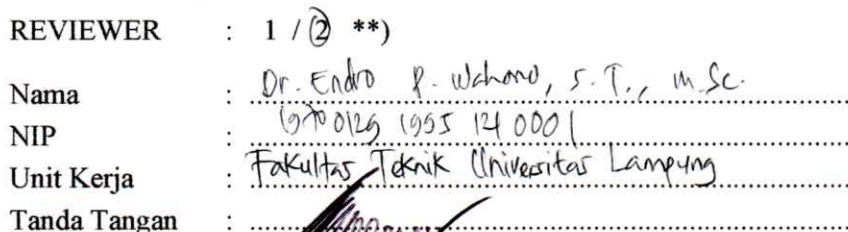 REVIEWER : 1 / 2 **)
Nama : Dr. Endro P. Wahono, S.T., M.Sc.
NIP : 19700129 1995 121 0001
Unit Kerja : Fakultas Teknik Universitas Lampung
Tanda Tangan :